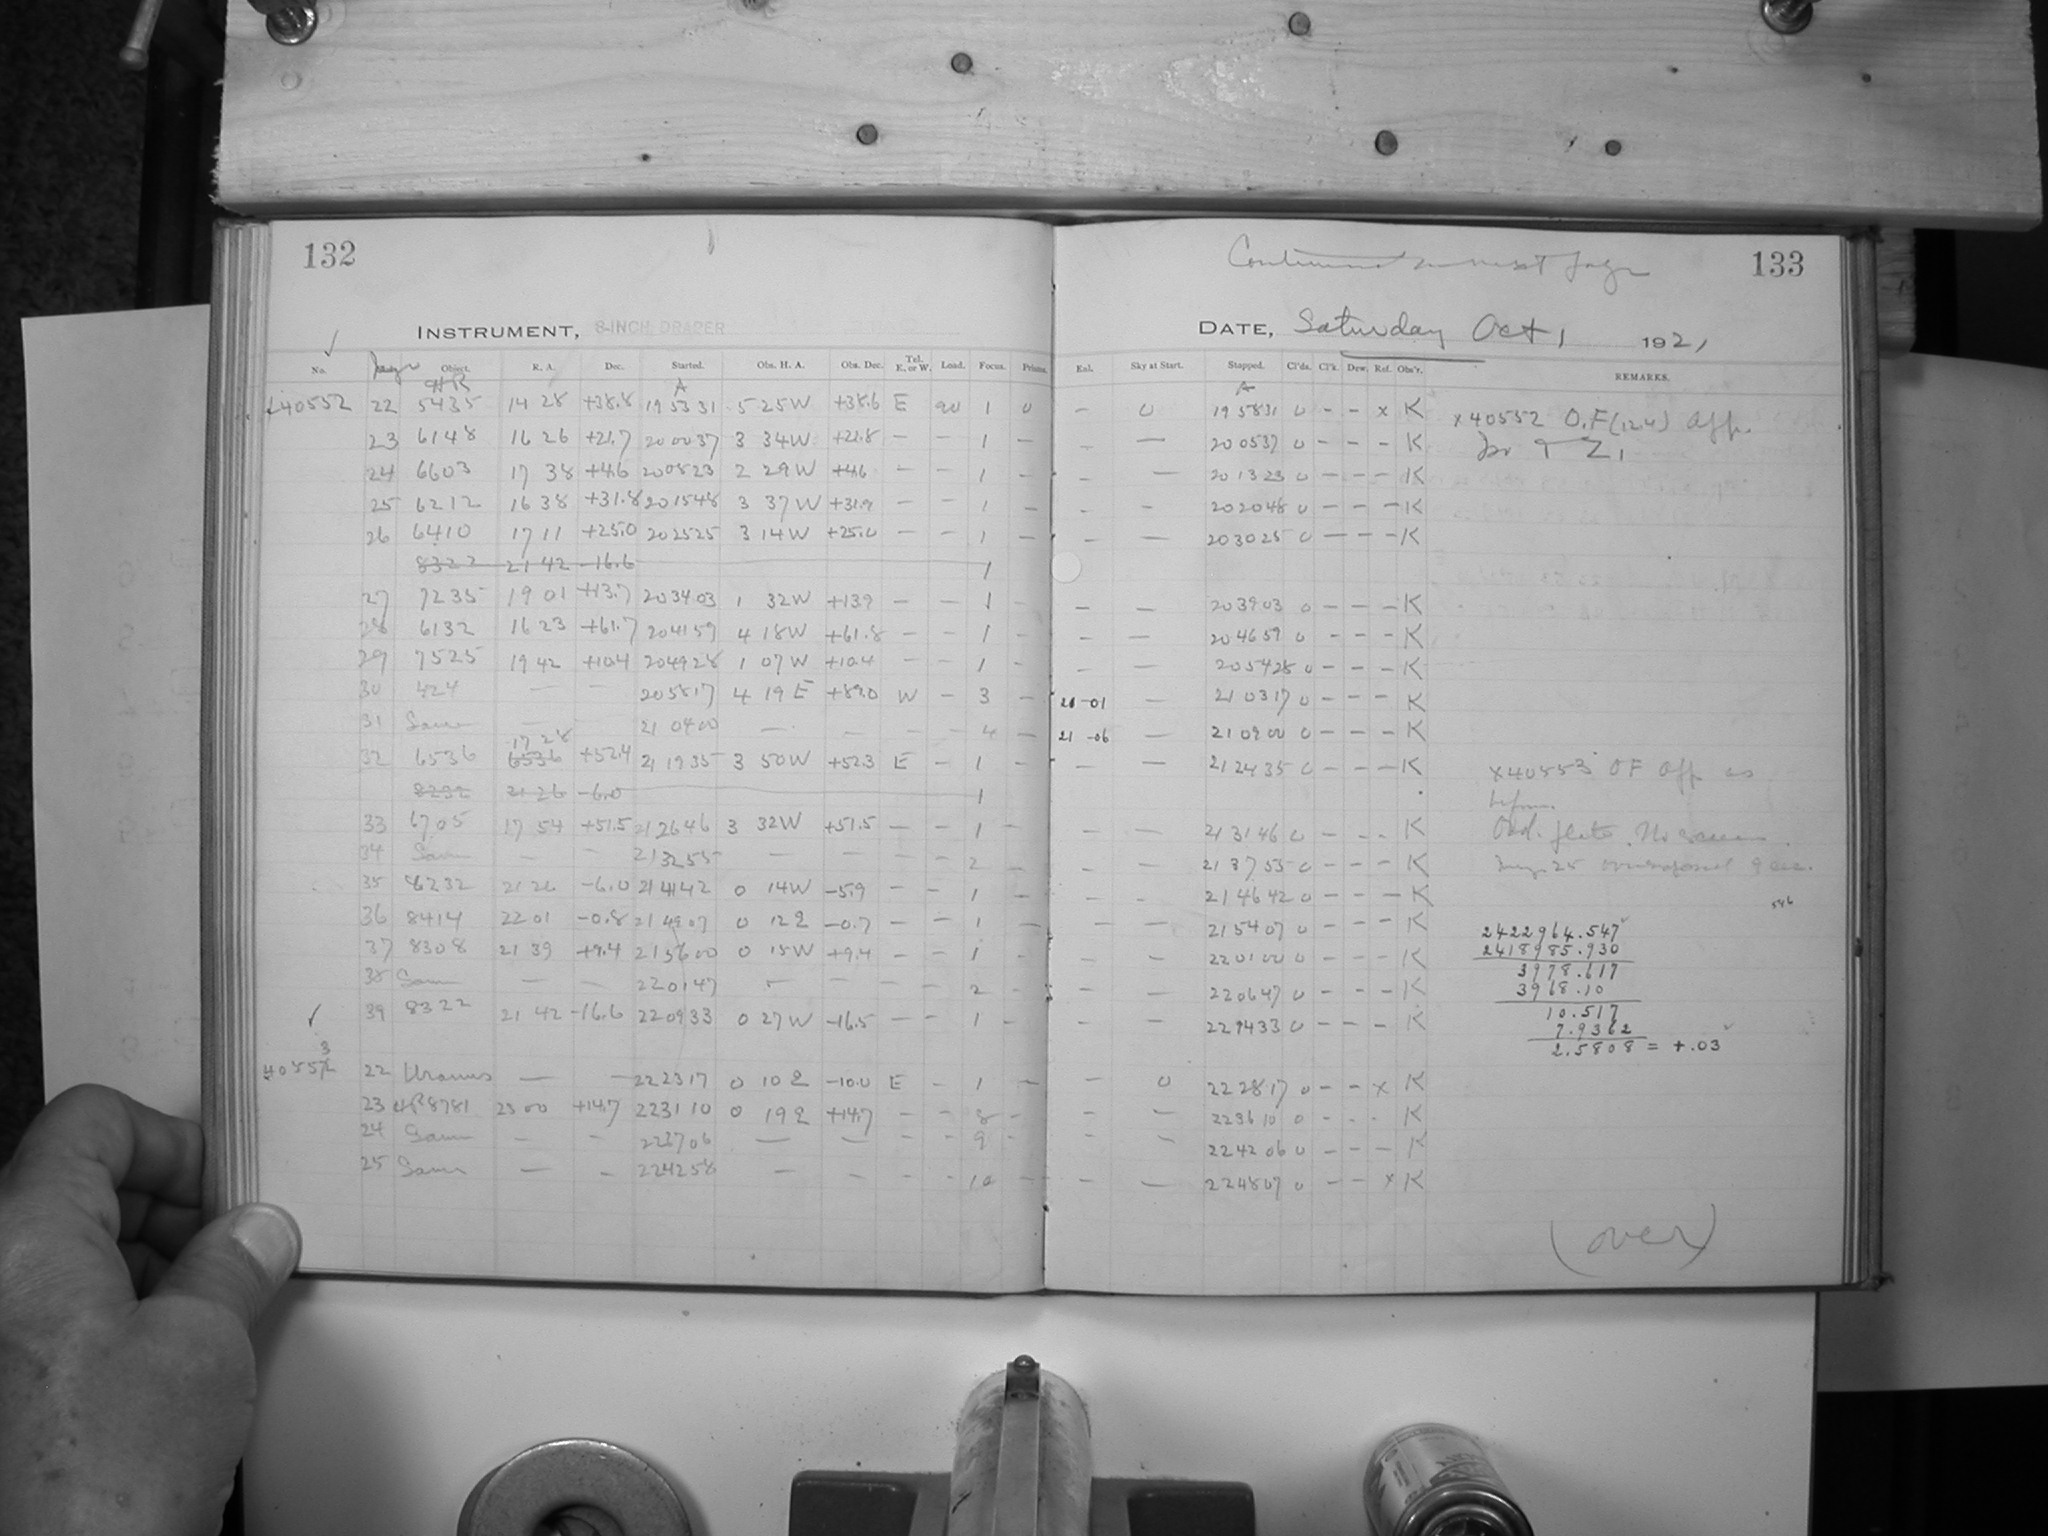 132
INSTRUMENT, 8-INCH DRAPER
No. Object. R. A. Dec. Started. Obs. H. A. Obs. Dec. Tel. E. or W. Load. Focus. Prisms.
HR A
40552 22 5435 14 28 +38.8 19 53 31 5 25 W +38.6 E 90 1 0
23 6148 16 26 +21.7 20 00 37 3 34 W +21.8 — — 1 -
24 6603 17 38 +4.6 20 08 23 2 29 W +4.6 — — 1 -
25 6212 16 38 +31.8 20 15 48 3 37 W +31.9 — — 1 -
26 6410 17 11 +25.0 20 25 25 3 14 W +25.0 — — 1 -
8322 21 42 -16.6 1
27 7235 19 01 +13.7 20 34 03 1 32 W +13.9 — — 1 -
28 6132 16 23 +61.7 20 41 59 4 18 W +61.8 — — 1 -
29 7525 19 42 +10.4 20 49 28 1 07 W +10.4 — — 1 -
30 424 — — 20 58 17 4 19 E +89.0 W - 3 -
31 Same — 21 04 00 — — - - 4 -
17 28
32 6536 6536 +52.4 21 19 35 3 50 W +52.3 E - 1 -
8232 21 26 -6.0 1
33 6705 17 54 +51.5 21 26 46 3 32 W +51.5 — — 1 -
34 Same — — 21 32 55 — — - - 2
35 8232 21 26 -6.0 21 41 42 0 14 W -5.9 - - 1 -
36 8414 22 01 -0.8 21 49 07 0 12 E -0.7 - - 1 -
37 8308 21 39 +9.4 21 56 00 0 15 W +9.4 - - 1 -
38 Same — — 22 01 47 — — - - 2 -
39 8322 21 42 -16.6 22 09 33 0 27 W -16.5 - - 1 -
3
40552 22 Uranus — — 22 23 17 0 10 E -10.0 E - 1 -
23 HR 8781 23 00 +14.7 22 31 10 0 19 E +14.7 - - 8 -
24 Same — - 22 37 06 — — - - 9 -
25 Same — - 22 42 58 — — - - 10 -
Continued on next page
133
DATE, Saturday Oct 1 1921
Sky at Start. Stopped. Cl'ds. Cl'k. Dew. Ref. Obs'r. REMARKS.
A
- 0 19 58 31 0 - - x K x 40552 O.F (124) aff.
- — 20 05 37 0 - - - K
- — 20 13 23 0 - - - K
- - 20 20 48 0 - - - K
- - 20 30 25 0 - - - K
- — 20 39 03 0 - - - K
- — 20 46 59 0 - - - K
- — 20 54 28 0 - - - K
21 03 17 0 - - - K
21 -06 — 21 09 00 0 - - - K
- — 21 24 35 0 - - - K x 40553 OF aff as
before
- — 21 31 46 0 - - - K
- - 21 37 55 0 - - - K
- - 21 46 42 0 - - - K
- - 21 54 07 0 - - - K
- - 22 01 00 0 - - - K
- — 22 06 47 0 - - - K
- — 22 14 33 0 - - - K
- 0 22 28 17 0 - - x K
- - 22 36 10 0 - - K
- - 22 42 06 0 - - - K
- — 22 48 07 0 - - x K
546
2422964.547
2418985.930
3978.617
3968.10
10.517
7.9362
2.5808 = +.03
(over)